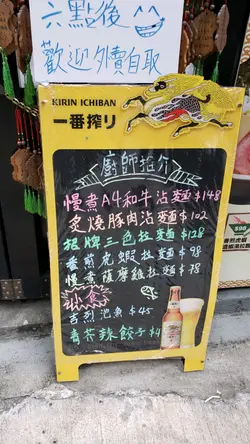 六點後
歡迎外賣自取
KIRIN ICHIBAN
一番搾り
廚師推介
慢煮A4和牛沾麵$148
炙燒豚肉沾麵$102
招牌三色拉麵$128
番茄虎蝦拉麵$98
慢煮薩摩雞拉麵$78
小食
吉列池魚$45
青芥辣餃子$4